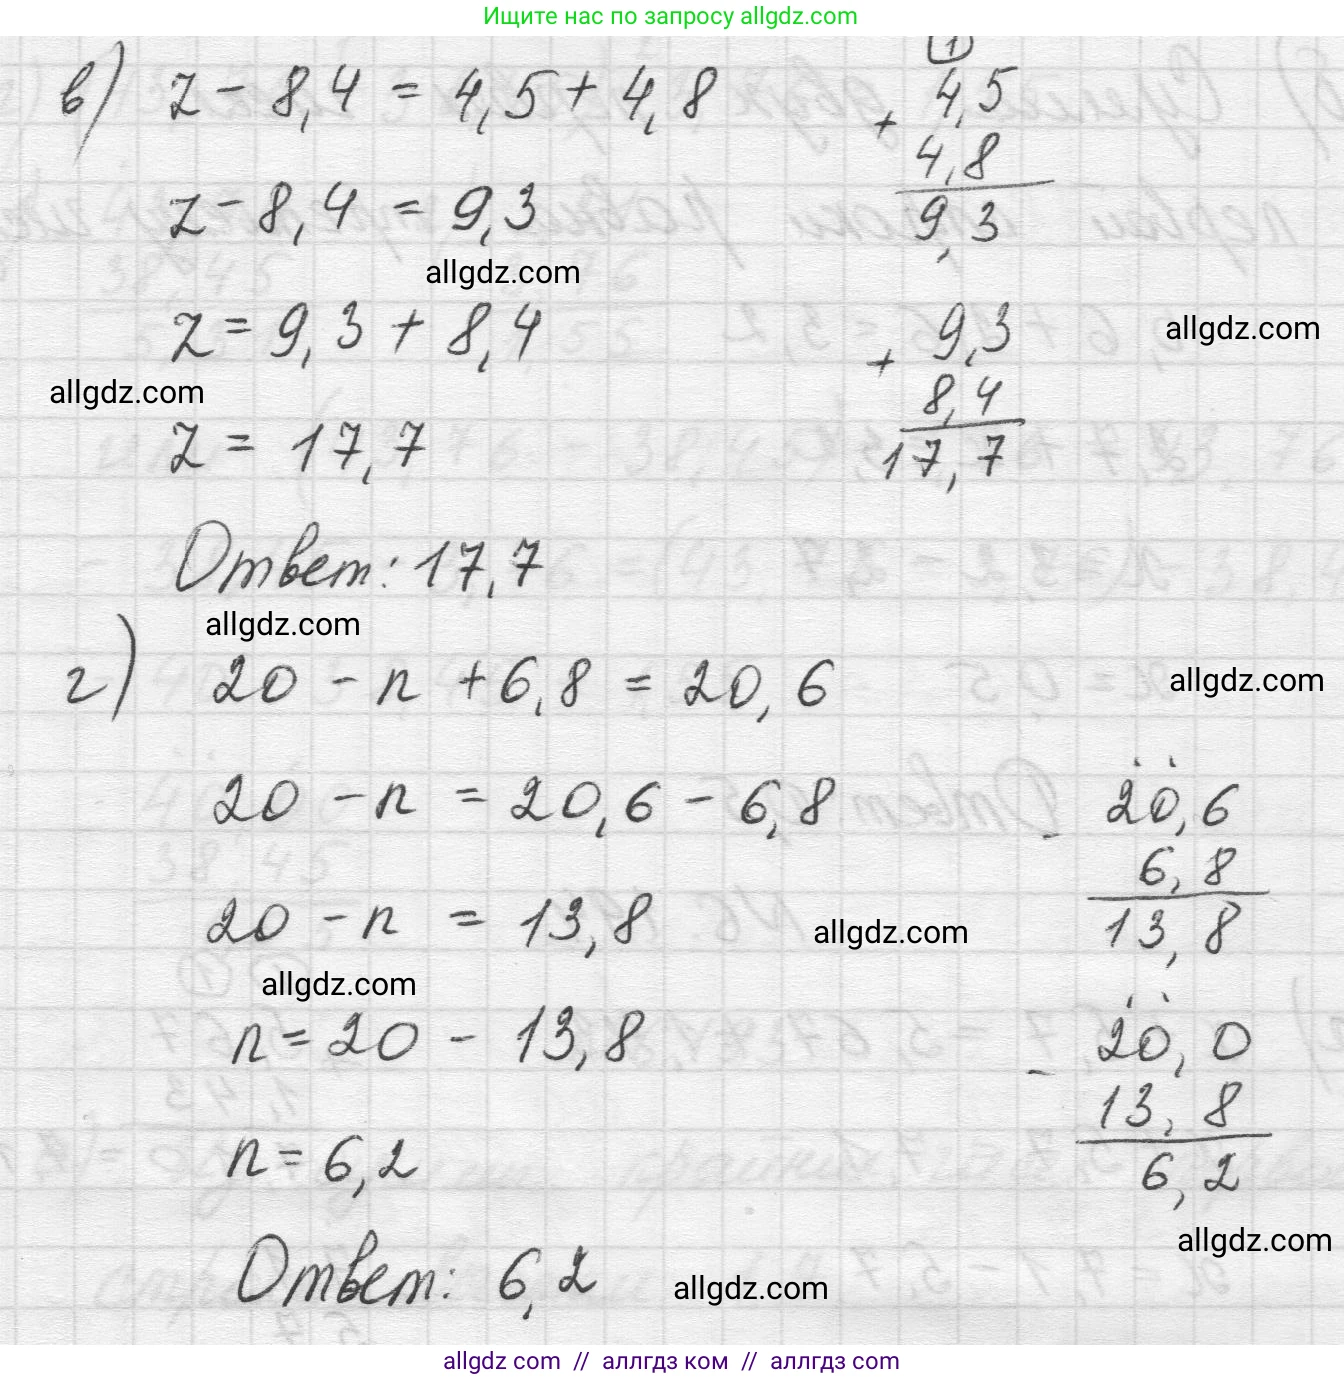 Ищите нас по запросу allgdz.com
в) z - 8,4 = 4,5 + 4,8
1
4,5
+
4,8
9,3
z - 8,4 = 9,3
allgdz.com
z = 9,3 + 8,4
9,3
+
8,4
17,7
allgdz.com
allgdz.com
z = 17,7
Ответ: 17,7
allgdz.com
г) 20 - n + 6,8 = 20,6
allgdz.com
20 - n = 20,6 - 6,8
20,6
-
6,8
13,8
20 - n = 13,8
allgdz.com
allgdz.com
n = 20 - 13,8
20,0
-
13,8
6,2
n = 6,2
allgdz.com
Ответ: 6,2
allgdz.com
allgdz com // аллгдз ком // аллгдз com